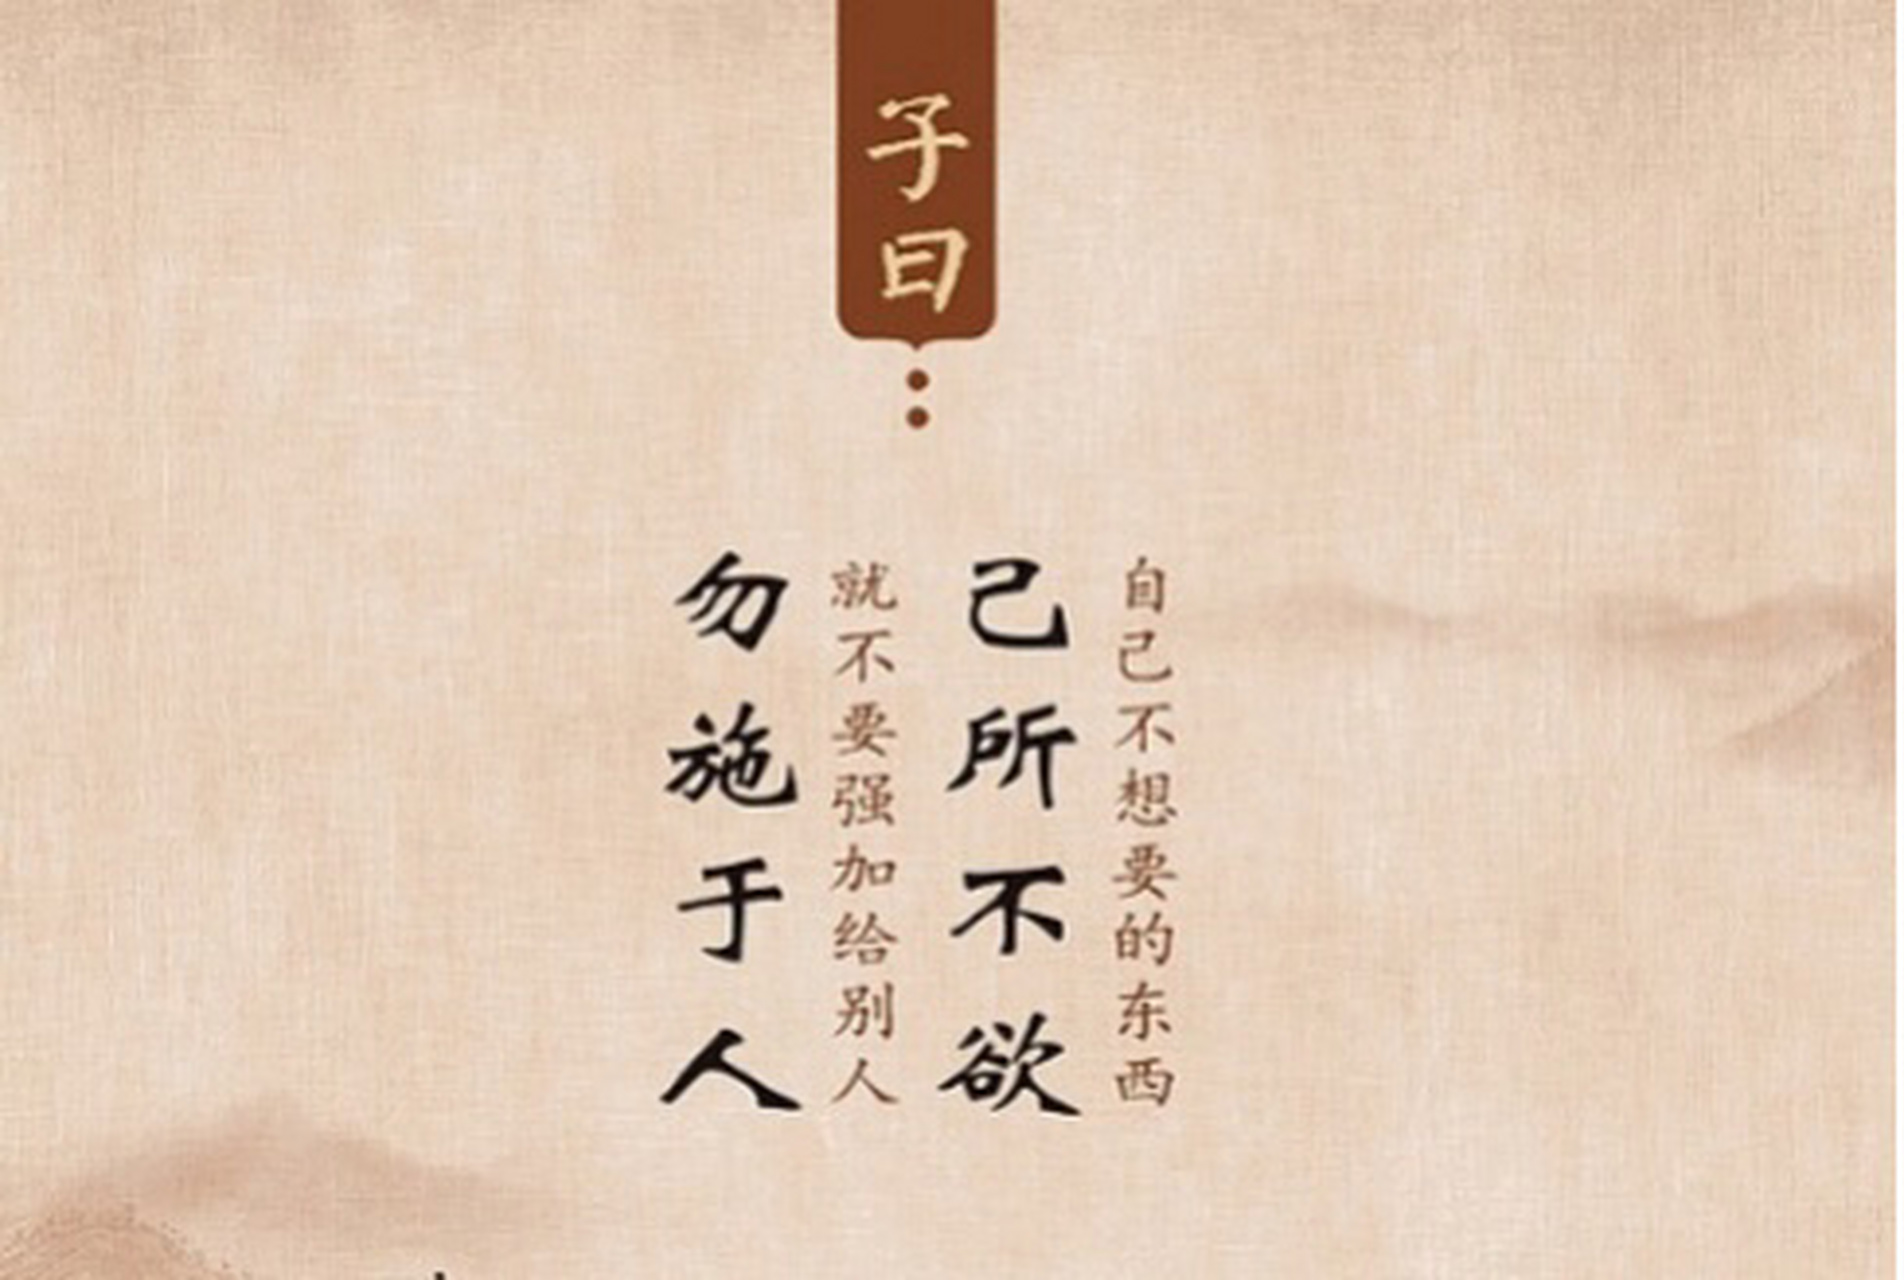 子曰
:
自己不想要的东西
己所不欲
就不要强加给别人
勿施于人